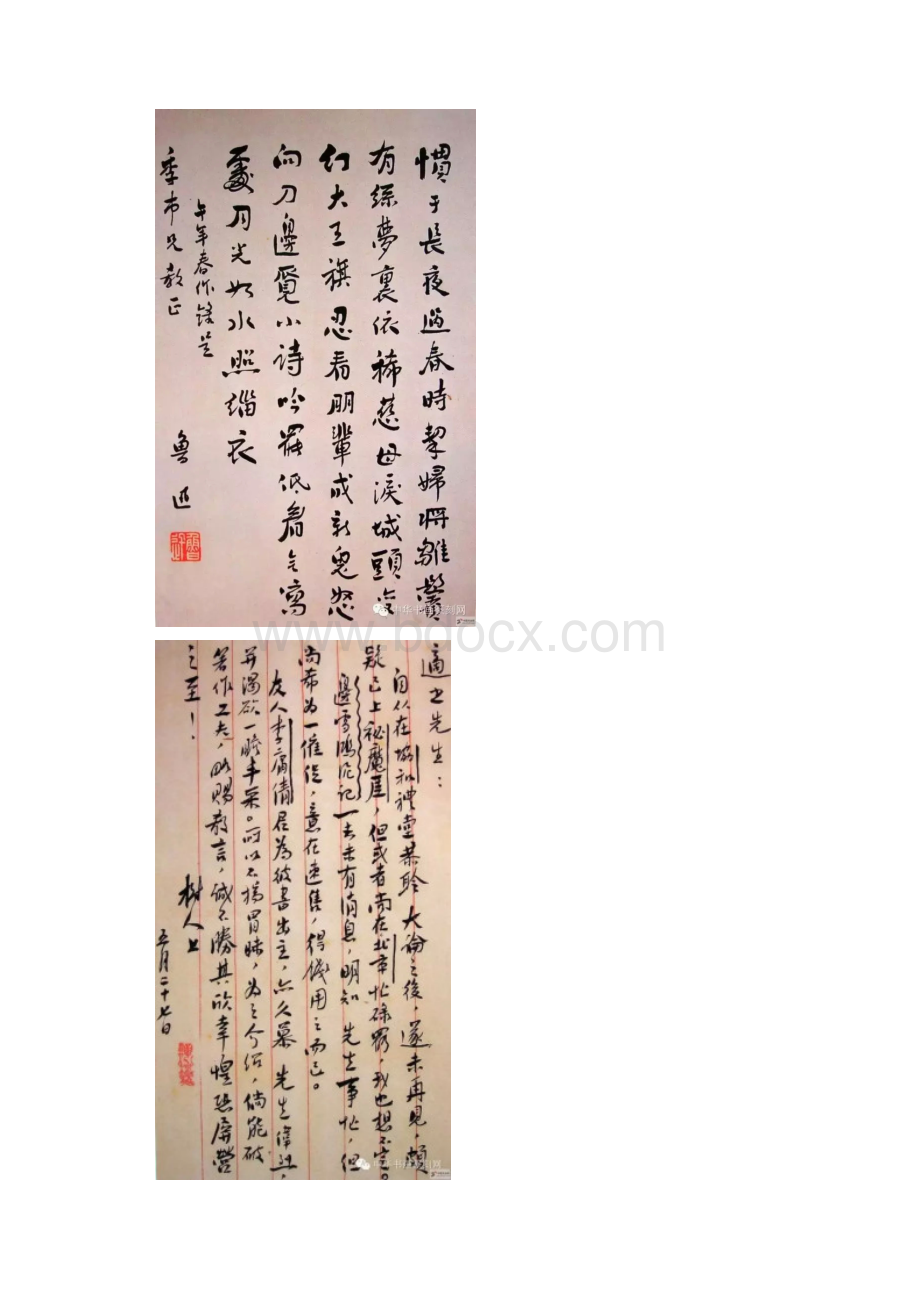 慣于長夜過春時挈婦將雛鬢
有絲夢裏依稀慈母淚城頭變
幻大王旗忍看朋輩成新鬼怒
向刀邊覓小詩吟罷低眉无寫
處月光如水照緇衣
午年春作錄呈
季市兄教正
魯迅
中华书画篆刻网
www.bdocx.com
適之先生：
自從在協和禮堂恭聆 大論之後，遂未再見，頗
疑已上祕魔厓，但或者尚在北京忙碌罷，我也想不定。
邊雪鴻泥記一去未有消息，明知 先生事忙，但
尚希為一催促，意在速售，得錢用之而已。
友人李庸倩君為彼書出主，亦久慕 先生偉烈，
并渴欲一瞻丰采。所以不揣冒昧，為之介紹，倘能破
著作工夫，略賜教言，誠不勝其欣幸惶恐屏營
之至！
樹人上
五月二十七日
中华书画篆刻网